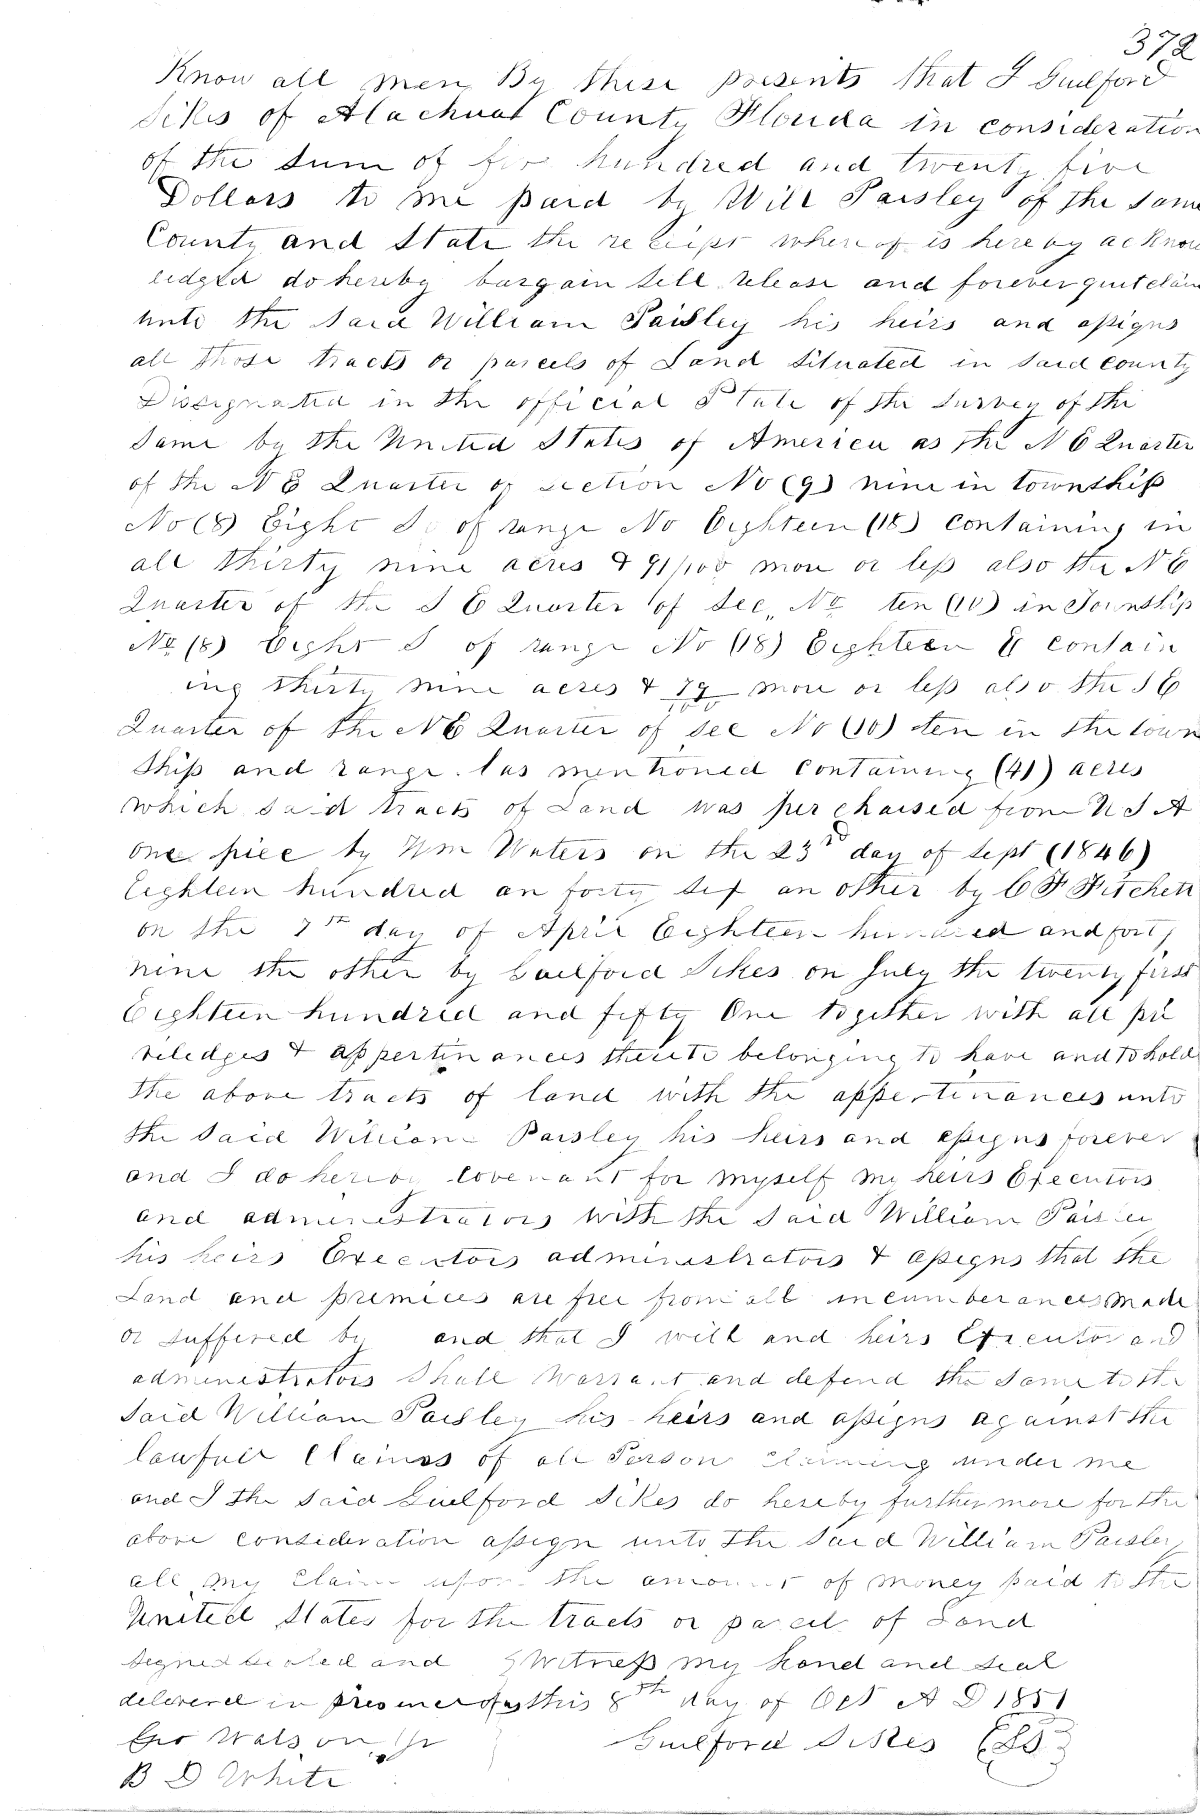 372
Know all men By these presents that I Guilford
Sikes of Alachua County Florida in consideration
of the sum of for hundred and twenty five
Dollars to me paid by Will Paisley of the same
County and State the receipt whereof is hereby acknow
ledged do hereby bargain sell release and forever quit claim
unto the said William Paisley his heirs and assigns
all those tracts or parcels of Land situated in said county
Dissignated in the official Plate of the survey of the
same by the United States of America as the N E Quarter
of the N E Quarter of section No (9) nine in township
No (8) Eight S of range No Eighteen (18) containing in
all thirty nine acres & 91/100 more or less also the N E
Quarter of the S E Quarter of Sec. No ten (10) in Township
No (8) Eight S of range No (18) Eighteen E contain
ing thirty nine acres & 79/100 more or less also the S E
Quarter of the N E Quarter of Sec No (10) ten in the town
ship and range las mentioned containing (41) acres
which said tracts of Land was perchaised from U S A
one piece by Wm Waters on the 23rd day of Sept (1846)
Eighteen hundred an forty six an other by C F Fitchett
on the 7th day of April Eighteen hundred and forty
nine the other by Guilford Sikes on July the twenty first
Eighteen hundred and fifty One together with all pri
viledges & appertinances thereto belonging to have and to hold
the above tracts of land with the appertinances unto
the said William Paisley his heirs and assigns forever
and I do hereby covenant for myself my heirs Executors
and administrators with the said William Paisley
his heirs Executors administrators & assigns that the
Land and premices are free from all incumberances made
or suffered by and that I will and heirs Executor and
administrators shall warrant and defend the same to the
said William Paisley his heirs and assigns against the
lawfull claims of all Person claiming under me
and I the said Guilford Sikes do hereby further more for the
above consideration assign unto the said William Paisley
all my claim upon the amount of money paid to the
United States for the tracts or parcel of Land
signed sealed and Witness my hand and seal
delivered in presence of us this 8th day of Oct A D 1851
Geo Watson Jr Guilford Sikes (LS)
B D White